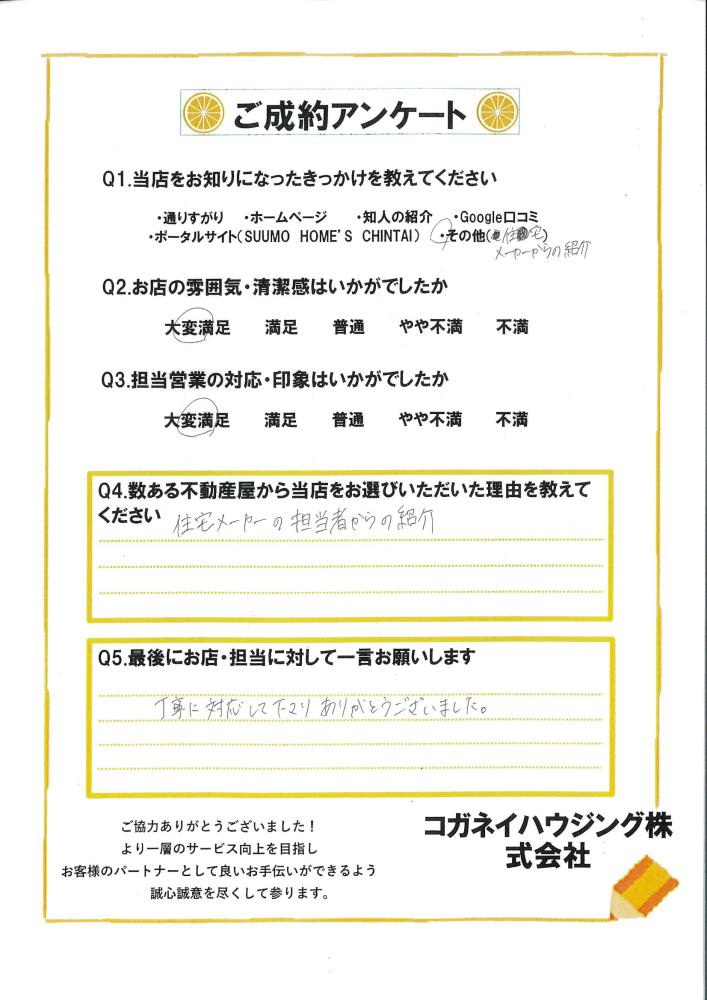 ご成約アンケート
Q1.当店をお知りになったきっかけを教えてください
・通りすがり ・ホームページ ・知人の紹介 ・Google口コミ
・ポータルサイト(SUUMO HOME'S CHINTAI) ・その他(住宅)
メーカーからの紹介
Q2.お店の雰囲気・清潔感はいかがでしたか
大変満足 満足 普通 やや不満 不満
Q3.担当営業の対応・印象はいかがでしたか
大変満足 満足 普通 やや不満 不満
Q4.数ある不動産屋から当店をお選びいただいた理由を教えて
ください
住宅メーカーの担当者からの紹介
Q5.最後にお店・担当に対して一言お願いします
丁寧に対応して下さり ありがとうございました。
ご協力ありがとうございました！
より一層のサービス向上を目指し
お客様のパートナーとして良いお手伝いができるよう
誠心誠意を尽くして参ります。
コガネイハウジング株
式会社